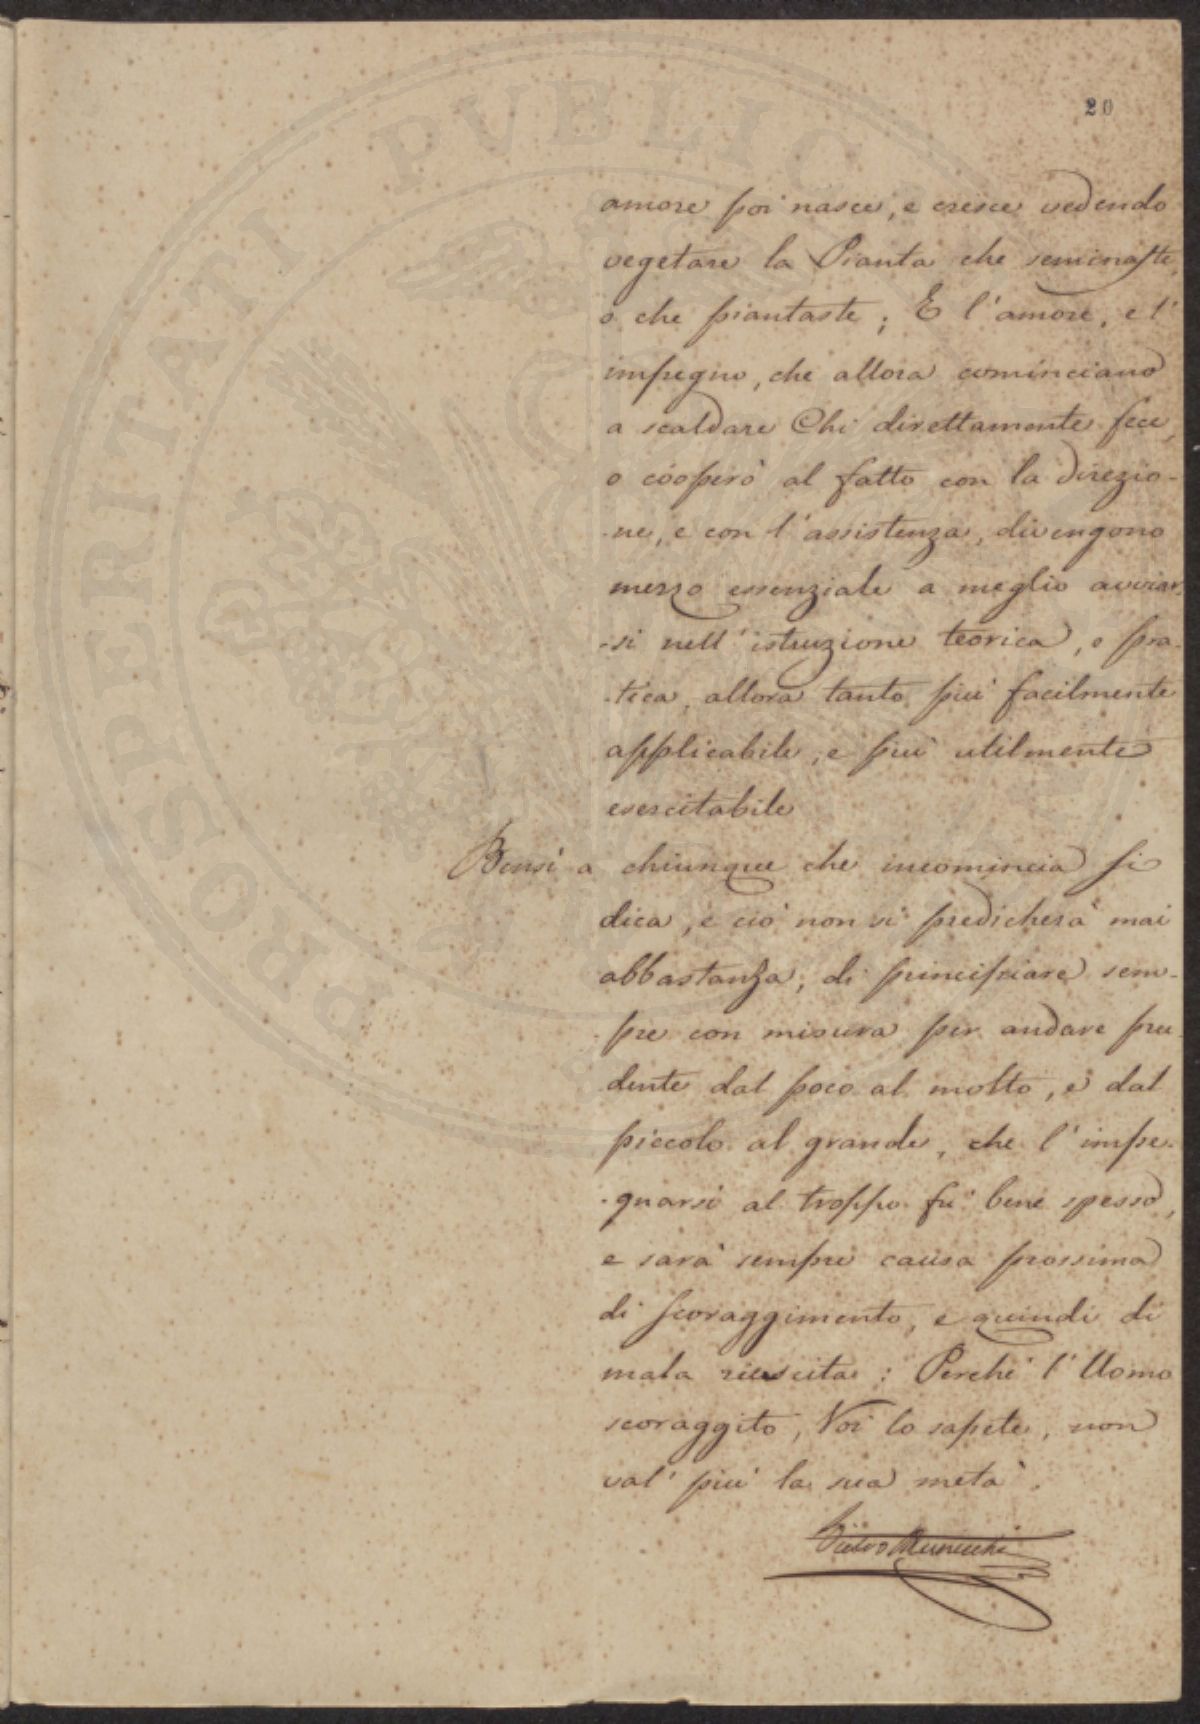 PROSPERITATI PVBLIC
20
amore poi nasce, e cresce vedendo
vegetare la Pianta che seminaste,
o che piantaste; E l'amore, e l'
impegno, che allora cominciano
a scaldare Chi direttamente fece,
o cooperò al fatto con la direzio-
-ne, e con l'assistenza, divengono
mezzo essenziale a meglio avviar-
-si nell'istruzione teorica, e pra-
-tica, allora tanto più facilmente
applicabile, e più utilmente
esercitabile
Bensì a chiunque che incomincia si
dica, e ciò non si predicherà mai
abbastanza, di principiare sem-
-pre con misura per andare pru-
dente dal poco al molto, e dal
piccolo al grande, che l'impe-
-gnarsi al troppo fù bene spesso,
e sarà sempre causa prossima
di scoraggimento, e quindi di
mala riescita: Perchè l'Uomo
scoraggito, Voi lo sapete, non
val' più la sua metà.
Pietro